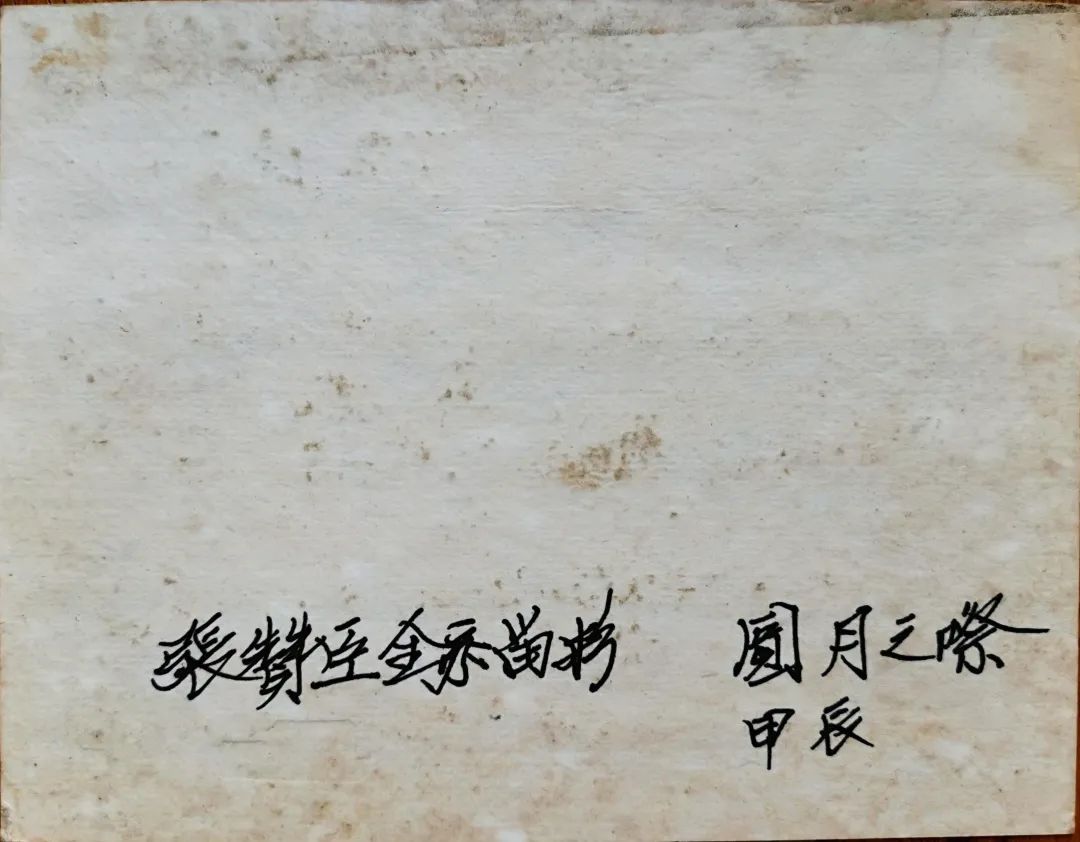 張贊臣全家留影 圓月之際
甲辰